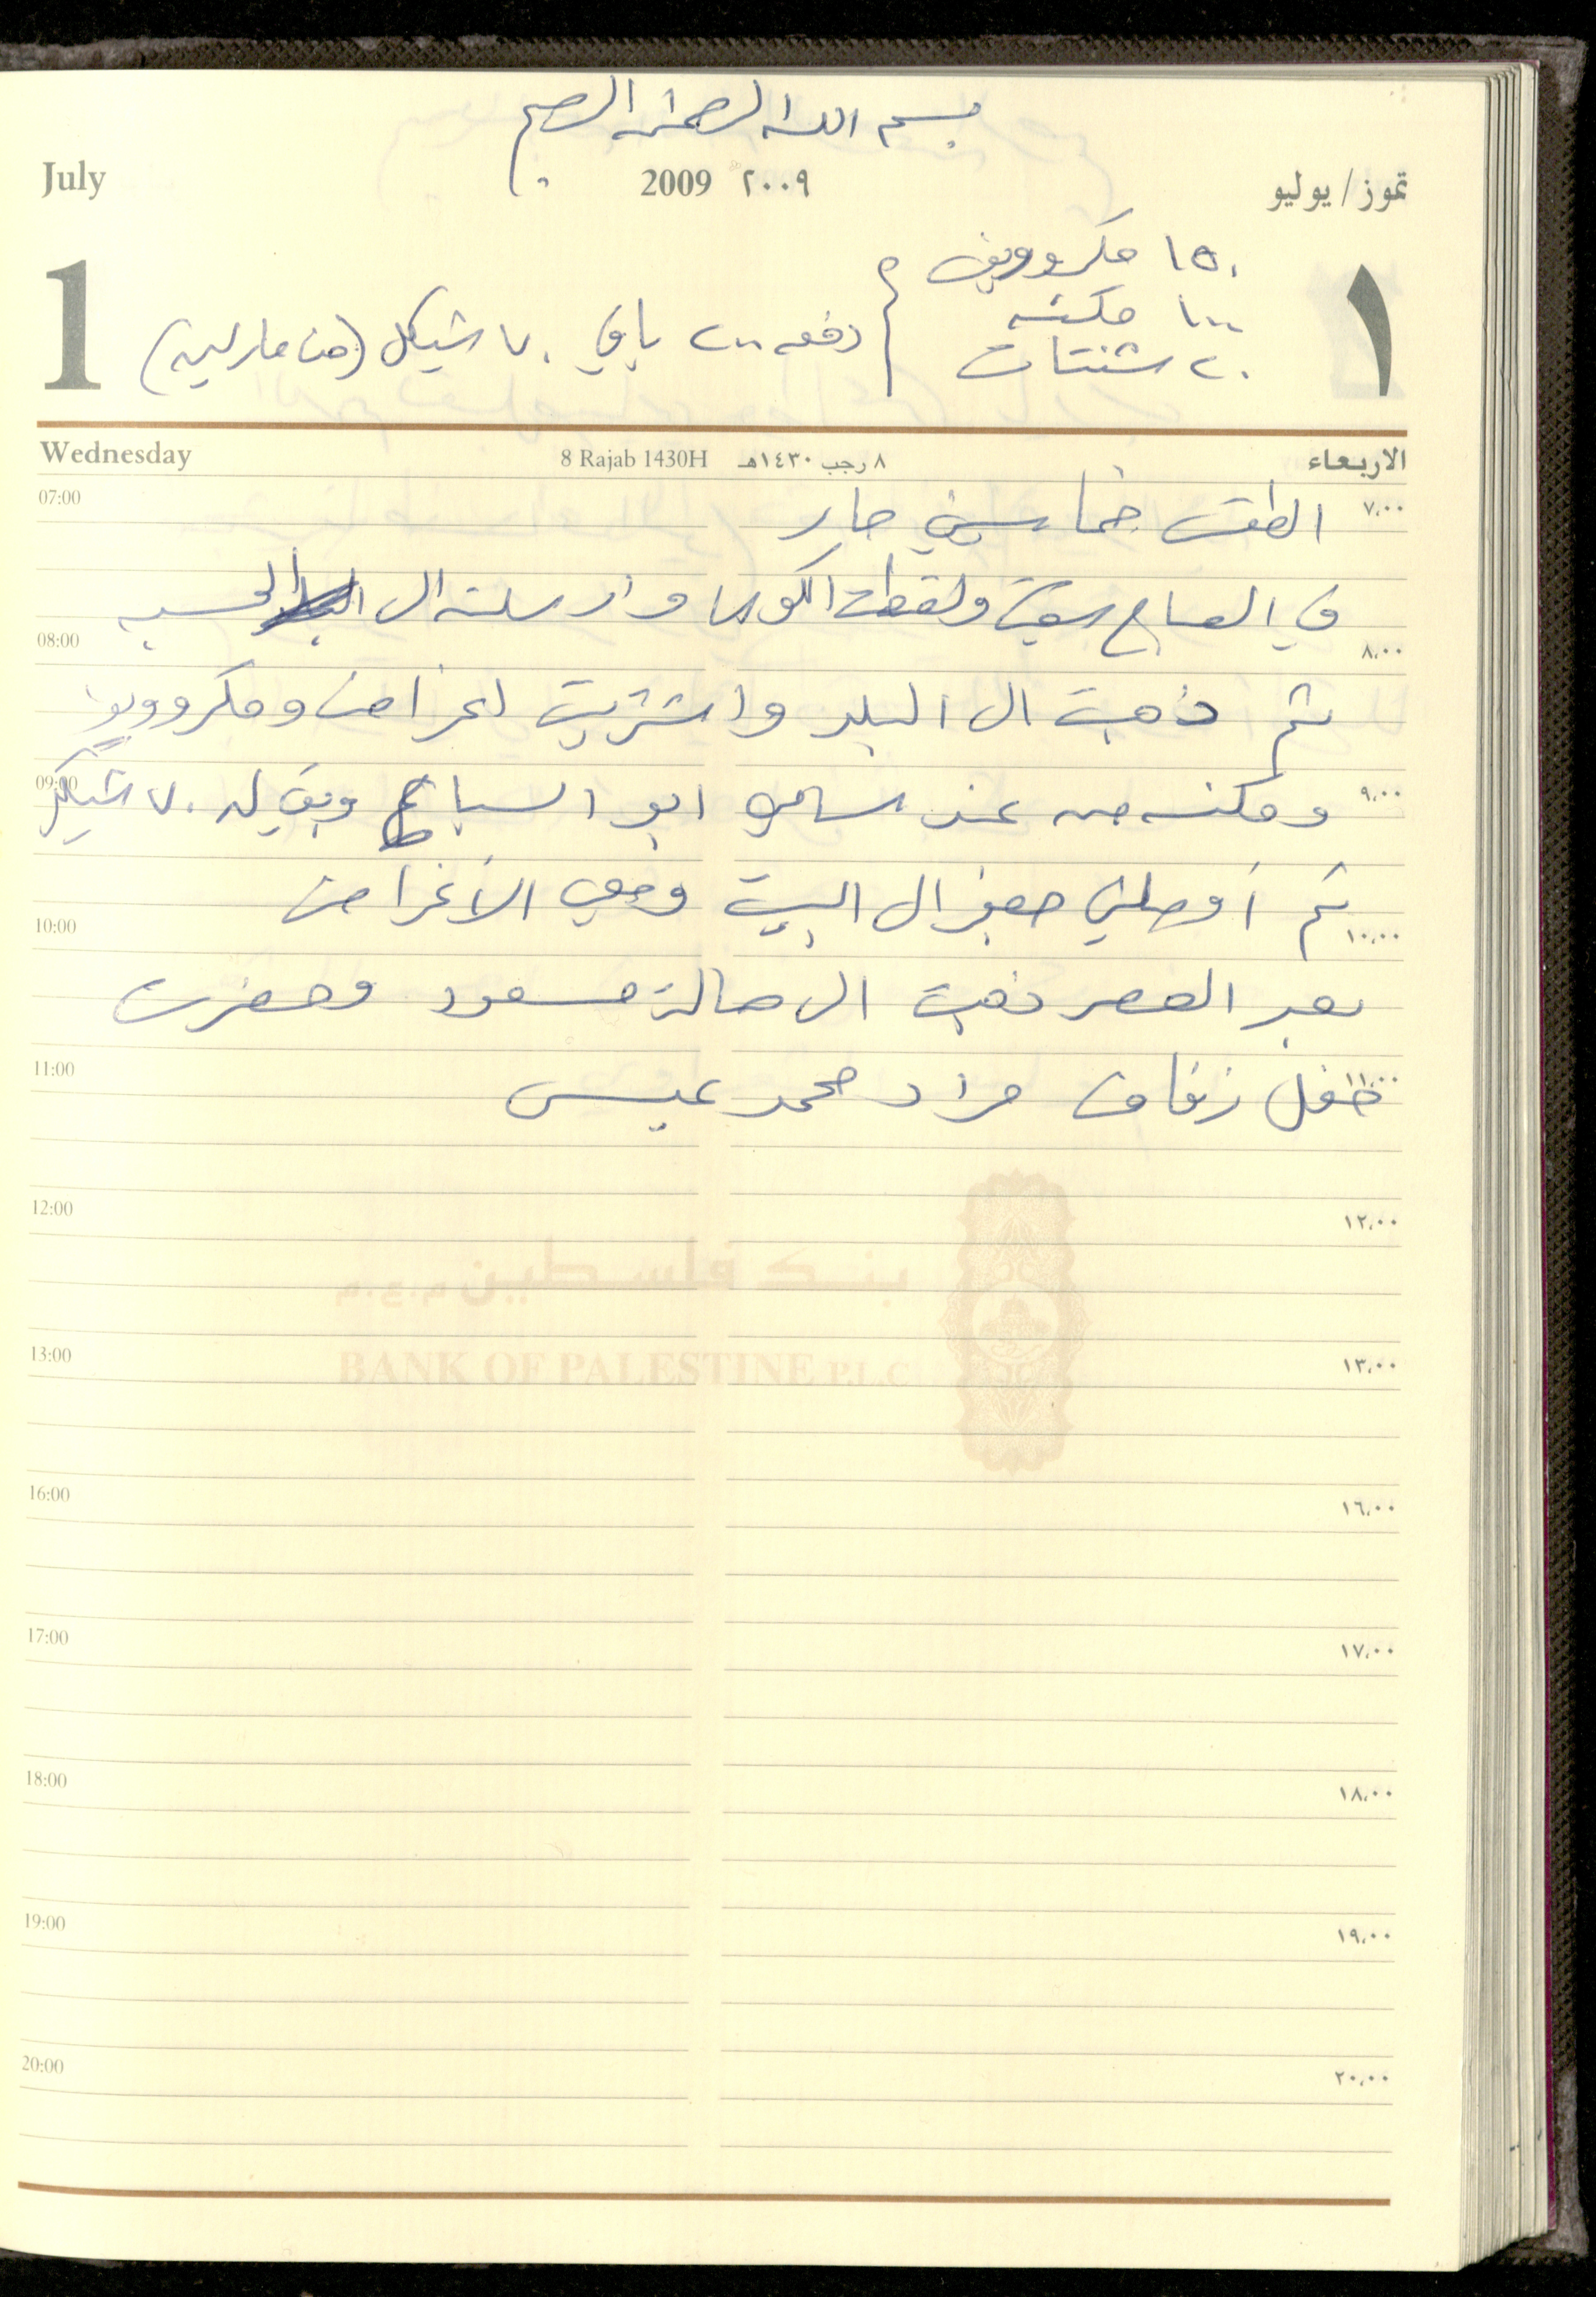 بسم الله الرحمن الرحيم
July 2009 ٢٠٠٩ تموز / يوليو
١٥٠ مكروويف
١٠٠ مكنسه
٢٠ شنتات
دفعه ٢٠٠ باقي ٧٠ شيكل (من ماركيه)
1 ١
Wednesday 8 Rajab 1430H ٨ رجب ١٤٣٠هـ الاربعاء
07:00 ٧,٠٠
الطقس خماسيني حار
في الصباح سقيت ولقطت الكوسا وارسلته الى الحسبه
08:00 ٨,٠٠
ثم ذهبت الى البلد واشتريت اغراض ومكروويف
09:00 ٩,٠٠
ومكنسه من عند سامي ابو السباع وبقي له ٧٠ شيكل
ثم أوصلني جعفر الى البيت ومعي الأغراض
10:00 ١٠,٠٠
بعد العصر ذهبت الى صالة مسعود وحضرت
11:00 ١١,٠٠
حفل زفاف مراد محمد عيسى
12:00 ١٢,٠٠
بنك فلسطين م.ع.م
13:00 ١٣,٠٠
BANK OF PALESTINE P.L.C
16:00 ١٦,٠٠
17:00 ١٧,٠٠
18:00 ١٨,٠٠
19:00 ١٩,٠٠
20:00 ٢٠,٠٠